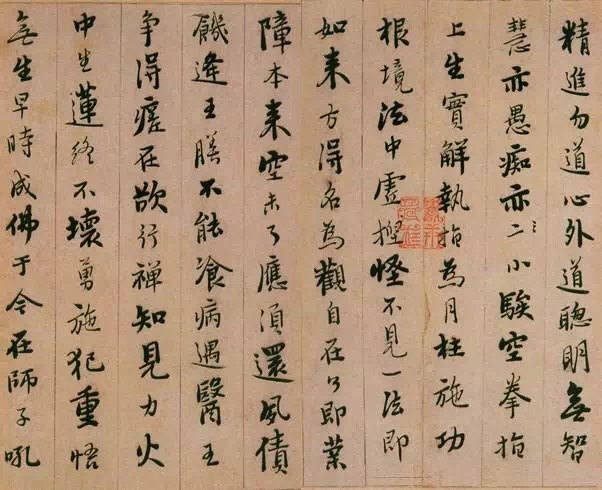 精進勿道心外道聰明無智
慧亦愚痴亦二小騃空拳指
上生實解執指為月枉施功
根境法中虛捏怪不見一法即
如来方得名為觀自在了即業
障本来空未了應須還夙債
饑逢王膳不能飡病遇醫王
争得瘥在欲行禪知見力火
中生蓮終不壞勇施犯重悟
無生早時成佛于今在師子吼